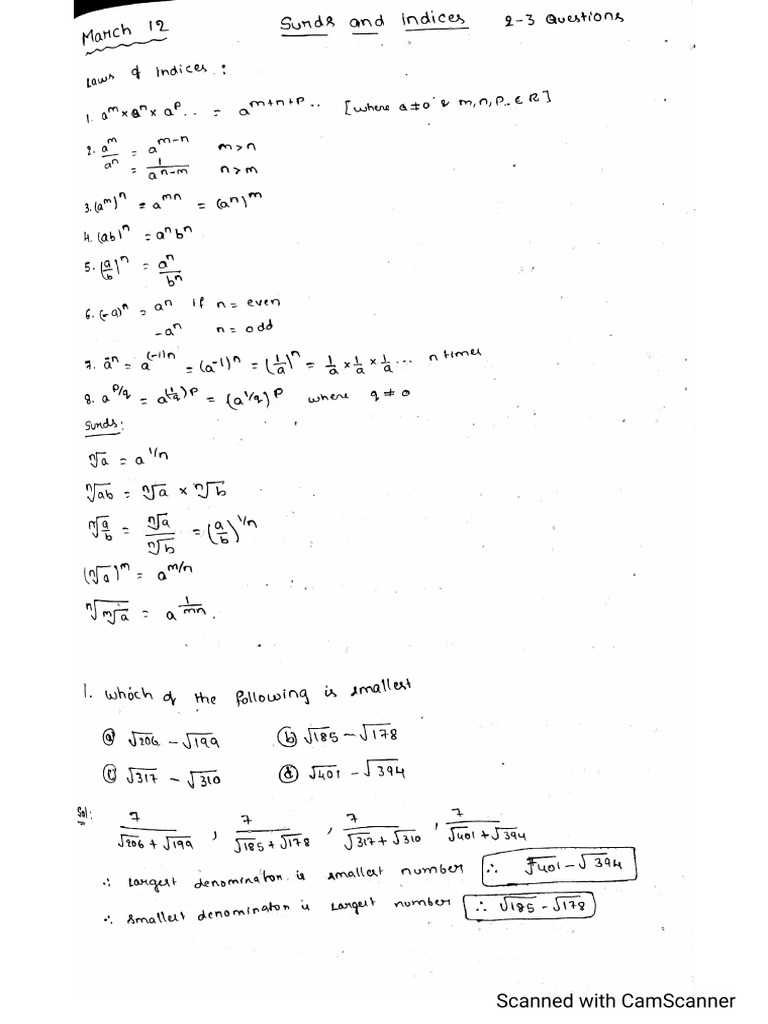 March 12
Surds and indices 2-3 Questions
Laws of indices :
1. a^m × a^n × a^p .. = a^{m+n+p..} [where a ≠ 0 & m, n, p.. ∈ R]
2. a^m/a^n = a^{m-n} m > n
= 1/a^{n-m} n > m
3. (a^m)^n = a^{mn} = (a^n)^m
4. (ab)^n = a^n b^n
5. (a/b)^n = a^n/b^n
6. (-a)^n = a^n if n = even
-a^n n = odd
7. a^{-n} = a^{(-1)n} = (a^{-1})^n = (1/a)^n = 1/a × 1/a × 1/a ... n times
8. a^{p/q} = a^{(1/q)p} = (a^{1/q})^p where q ≠ 0
Surds:
ⁿ√a = a^{1/n}
ⁿ√ab = ⁿ√a × ⁿ√b
ⁿ√(a/b) = ⁿ√a / ⁿ√b = (a/b)^{1/n}
(ⁿ√a)^m = a^{m/n}
ⁿ√(ᵐ√a) = a^{1/mn}.
1. which of the following is smallest
(a) √206 - √199 (b) √185 - √178
(c) √317 - √310 (d) √401 - √394
Sol: 7/(√206 + √199) , 7/(√185 + √178) , 7/(√317 + √310) , 7/(√401 + √394)
∴ Largest denominator is smallest number ∴ √401 - √394
∴ Smallest denominator is Largest number ∴ √185 - √178
Scanned with CamScanner